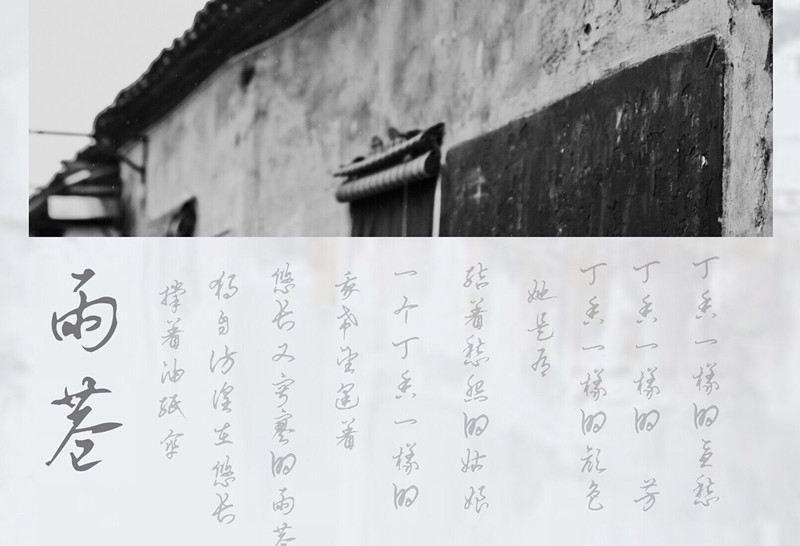 雨巷
撑着油紙伞
独自彷徨在悠长
悠长又寂寥的雨巷
我希望逢着
一个丁香一樣的
结着愁怨的姑娘
她是有
丁香一樣的颜色
丁香一樣的 芳
丁香一樣的忧愁